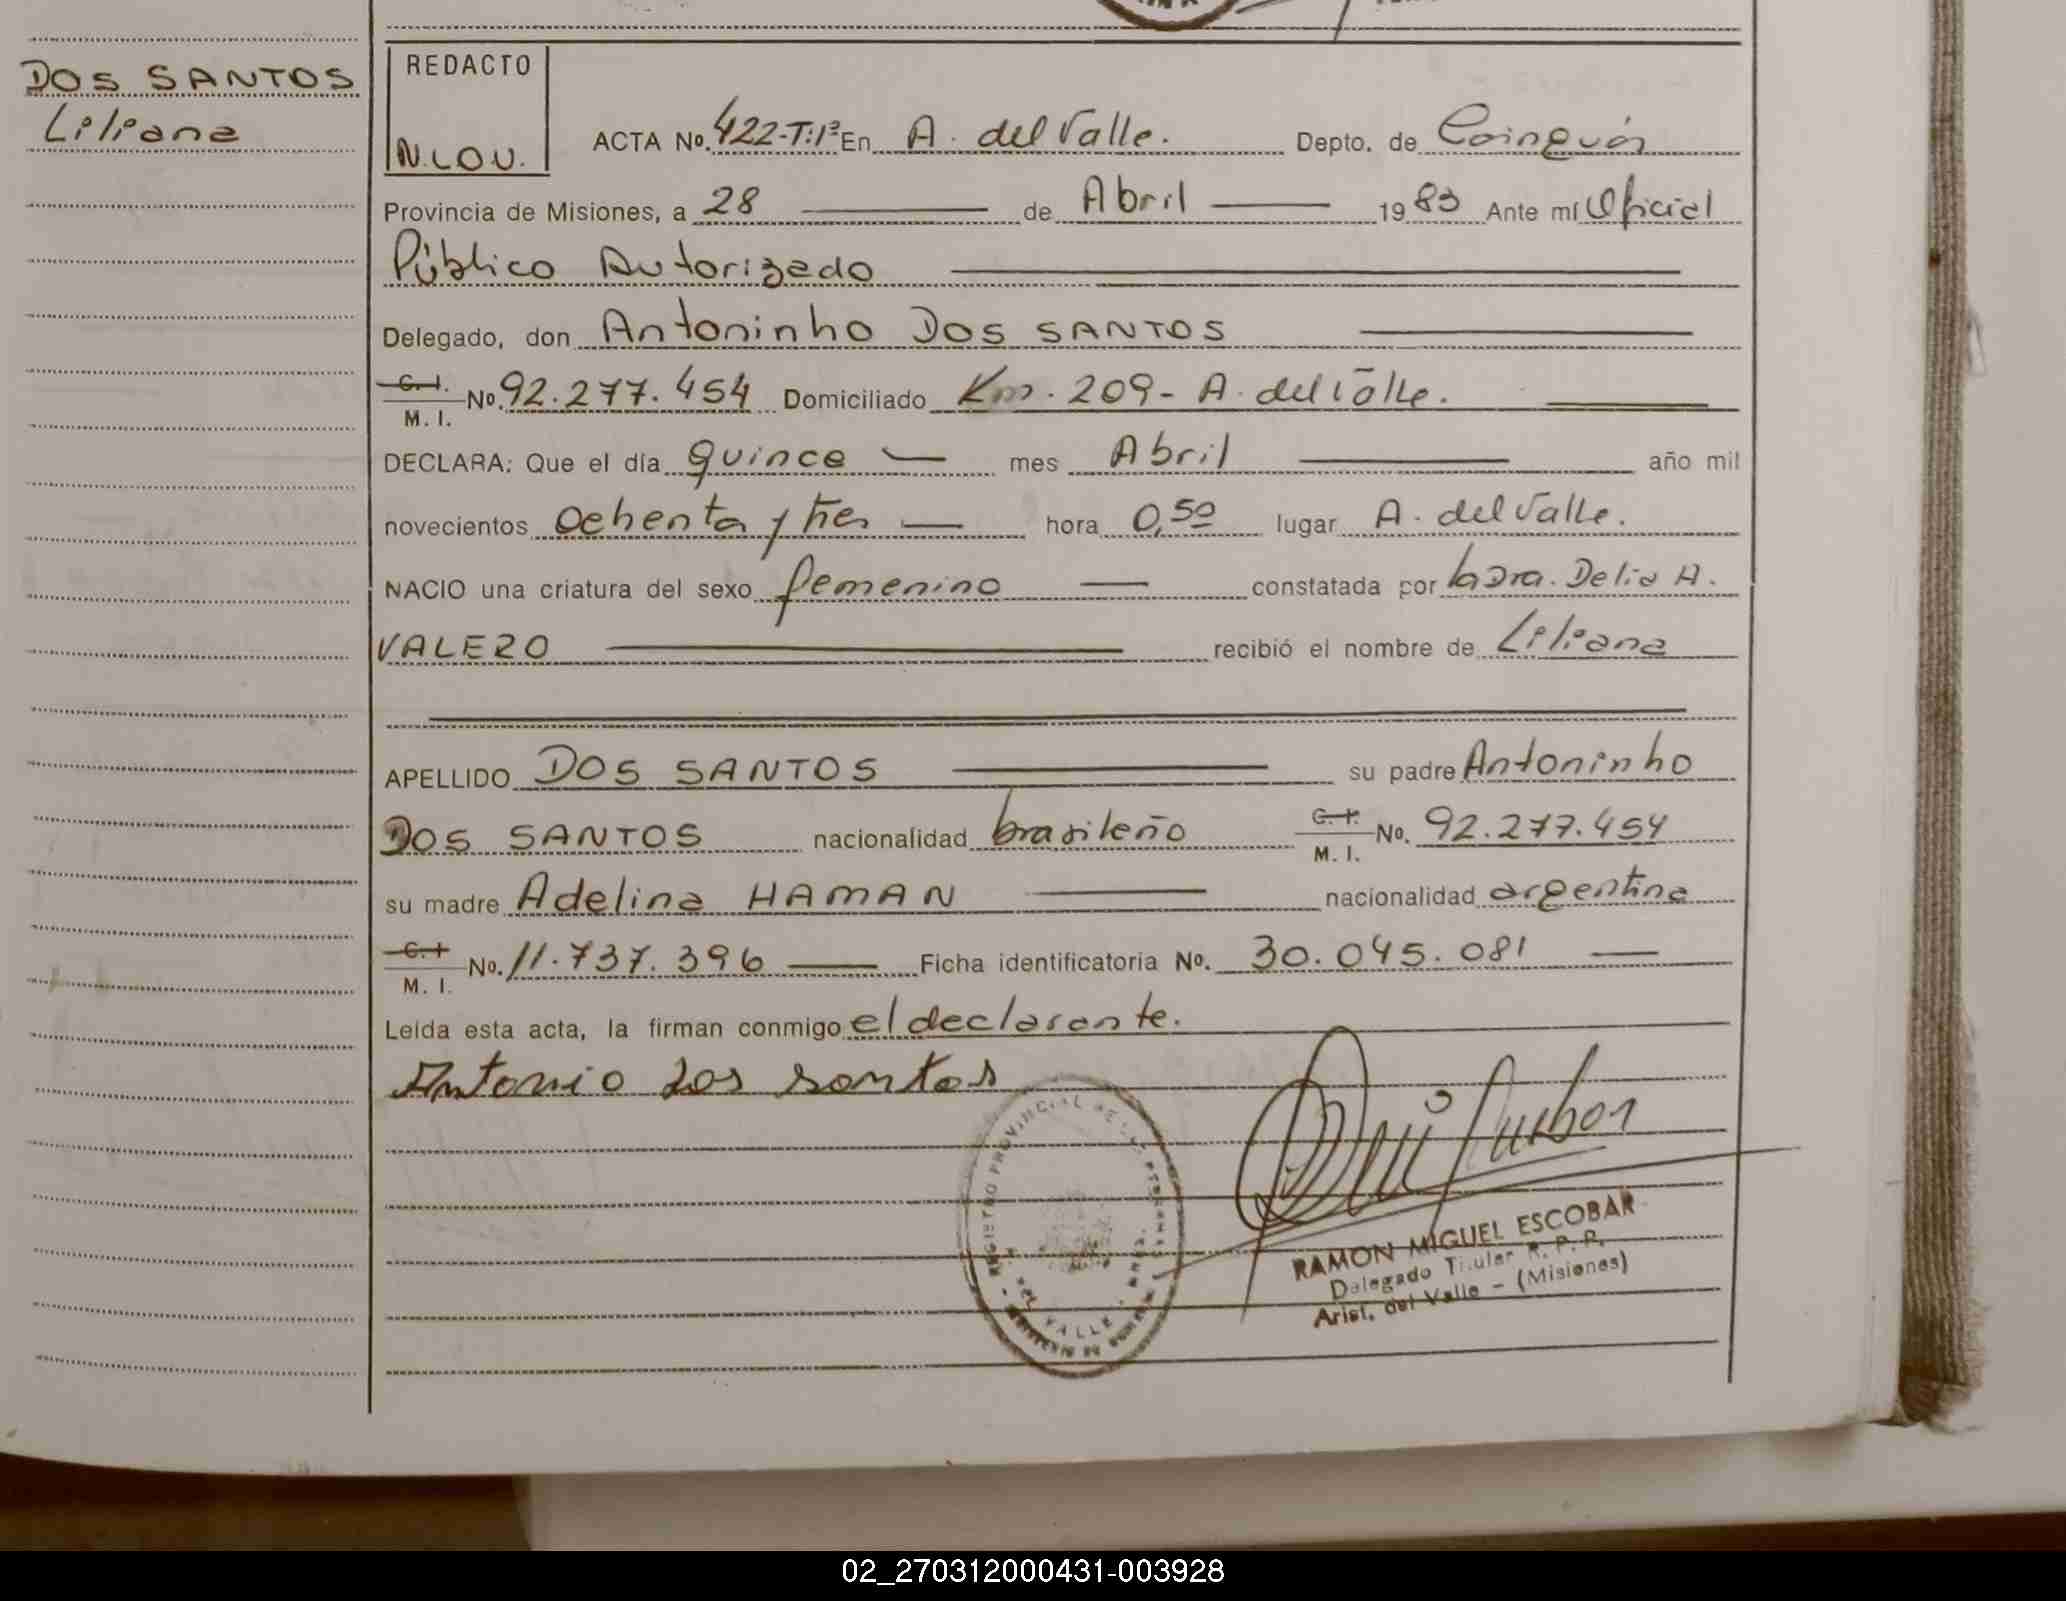 DOS SANTOS
Liliana
REDACTO
N.LOU.
ACTA No. 422-T:1º En A. del Valle. Depto. de Cainguás
Provincia de Misiones, a 28 de Abril 1983 Ante mí Oficial
Público Autorizado
Delegado, don Antoninho DOS SANTOS
C. I.
M. I. No. 92.277.454 Domiciliado Km. 209- A. del Valle.
DECLARA: Que el día quince mes Abril año mil
novecientos ochenta y tres hora 0,50 lugar A. del Valle.
NACIO una criatura del sexo femenino constatada por la Dra. Delia A.
VALERO recibió el nombre de Liliana
APELLIDO DOS SANTOS su padre Antoninho
DOS SANTOS nacionalidad brasileño C. I.
M. I. No. 92.277.454
su madre Adelina HAMAN nacionalidad argentina
C. I.
M. I. No. 11.737.396 Ficha identificatoria No. 30.045.081
Leída esta acta, la firman conmigo el declarante.
Antonio dos santos
REGISTRO PROVINCIAL DE LAS PERSONAS
VALLE
RAMON MIGUEL ESCOBAR
Delegado Titular R. P. P.
Arist. del Valle - (Misiones)
02_270312000431-003928